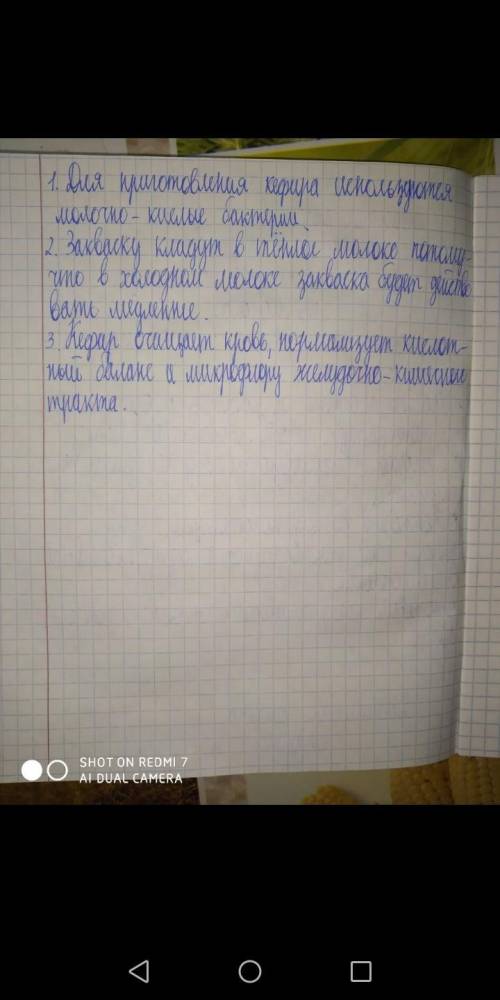 1. Для приготовления кефира используются
молочно-кислые бактерии.
2. Закваску кладут в тёплое молоко потому-
что в холодном молоке закваска будет действо
вать медленне.
3. Кефир очищает кровь, нормализует кислот-
ный баланс и микрофлору желудочно-кишечного
тракта.
SHOT ON REDMI 7
AI DUAL CAMERA